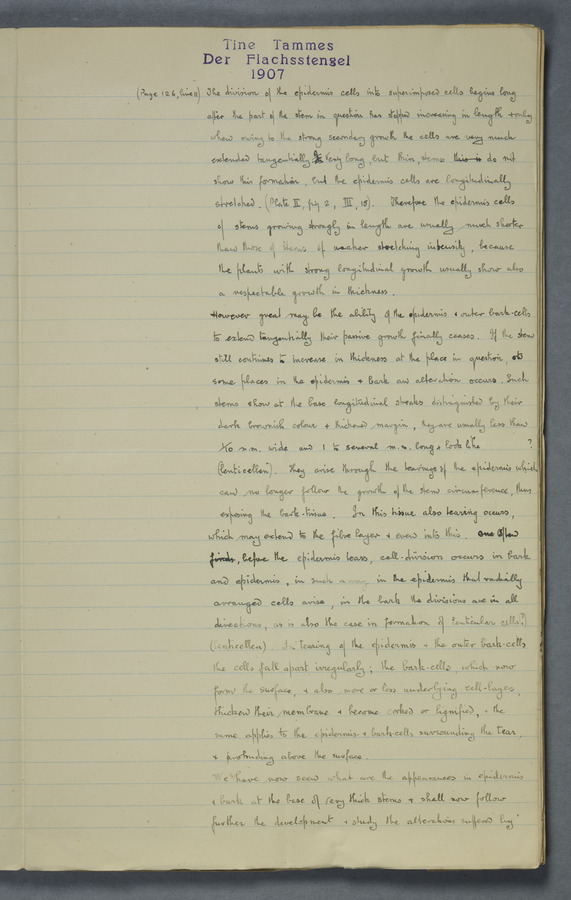 Tine Tammes
Der Flachsstengel
1907
(Page 126, line 11) The division of the epidermis cells into superimposed cells begins long
after the part of the stem in question has stopped increasing in length & only
when owing to the strong secondary growth the cells are very much
extended tangentially. Very long, but thin, stems this is do not
show this formation, but the epidermis cells are longitudinally
stretched. (Plate II, fig 2, III, 18). Therefore the epidermis cells
of stems growing strongly in length are usually much shorter
than those of stems of weaker stretching intensity, because
the plants with strong longitudinal growth usually show also
a respectable growth in thickness.
However great may be the ability of the epidermis & outer bark-cells
to extend tangentially their passive growth finally ceases. If the stem
still continues to increase in thickness at the place in question, at
some places in the epidermis & bark an alteration occurs. Such
stems show at the base longitudinal streaks distinguished by their
dark brownish colour & thickened margin, they are usually less than
1/10 m.m. wide and 1 to several m.m. long & look like ?
(Lenticellen). They arise through the tearings of the epidermis which
can no longer follow the growth of the stem circumference, thus
exposing the bark-tissue. In this tissue also tearing occurs,
which may extend to the fibre layer & even into this. One often
finds, before the epidermis tears, cell-division occurs in bark
and epidermis, in such a way in the epidermis that radially
arranged cells arise, in the bark the divisions are in all
directions, as is also the case in formation of lenticular cells(?)
(Lenticellen). In tearing of the epidermis & the outer bark-cells
the cells fall apart irregularly; the bark-cells, which now
form the surface, & also more or less underlying cell-layers,
thicken their membrane & become corked or lignified, & the
same applies to the epidermis- & bark-cells surrounding the tear,
& protruding above the surface.
We have now seen what are the appearances in epidermis
& bark at the base of very thick stems & shall now follow
further the development & study the alterations suffered by